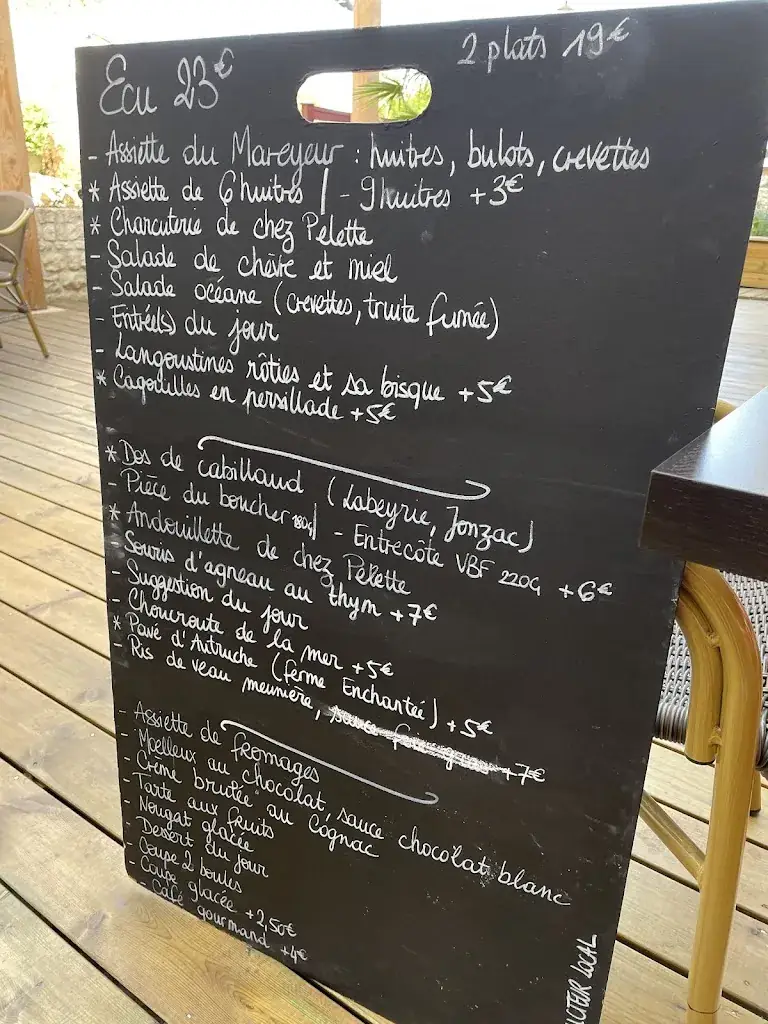 Ecu 23€
2 plats 19€
- Assiette du Mareyeur : huitres, bulots, crevettes
* Assiette de 6 huitres | - 9 huitres +3€
* Charcuterie de chez Pelette
- Salade de chèvre et miel
- Salade océane (crevettes, truite fumée)
- Entrée(s) du jour
- Langoustines rôties et sa bisque +5€
* Cagouilles en persillade +5€
* Dos de cabillaud (Labeyrie, Jonzac)
- Pièce du boucher 180g | - Entrecôte VBF 220G +6€
* Andouillette de chez Pelette
- Souris d'agneau au thym +7€
- Suggestion du jour
- Choucroute de la mer +5€
* Pavé d'Autruche (ferme Enchantée) +5€
- Ris de veau meunière, +7€
- Assiette de fromages
- Moelleux au chocolat, sauce chocolat blanc
- Crème brulée au Cognac
- Tarte aux fruits
- Nougat glacée
- Dessert du jour
- Coupe 2 boules
- Coupe glacée +2,50€
- Café gourmand +4€
CTEUR LOCAL